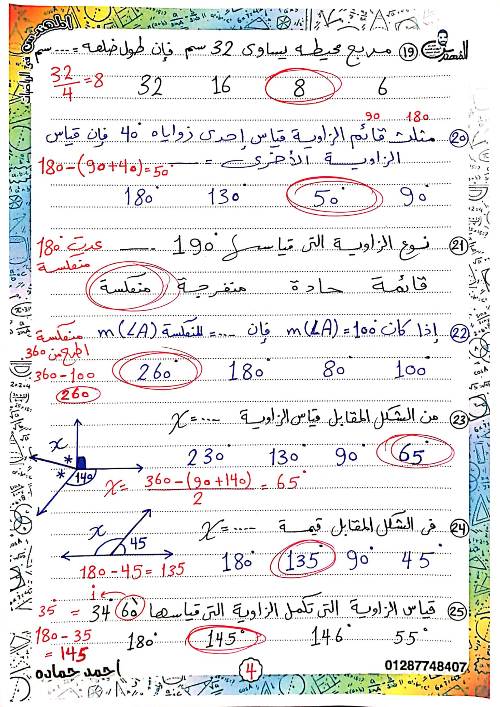 ⑲ مربع محيطه يساوى 32 سم فإن طول ضلعه = .... سم
6 8 16 32
32/4 = 8
90 180
⑳ مثلث قائم الزاوية قياس إحدى زواياه 40° فإن قياس
الزاوية الأخرى = ——
180 - (90+40) = 50°
90° 50° 130° 180°
㉑ نوع الزاوية التى قياسها 190° ——
عدت 180°
منعكسة
قائمة حادة منفرجة منعكسة
㉒ إذا كان m(∠A) = 100° فإن .... = m(∠A) المنعكسة
منعكسة
اطرح من 360
360-100
260
100° 80° 180° 260°
㉓ من الشكل المقابل قياس الزاوية x = ....
65° 90° 130° 230°
x
*
*
140
x = 360 - (90 + 140) / 2 = 65°
㉔ فى الشكل المقابل قيمة x = ....
45° 90° 135° 180°
x
45
180 - 45 = 135
㉕ قياس الزاوية التى تكمل الزاوية التى قياسها 60 34 = 35°
55° 146° 145° 180°
180 - 35
= 145
احمد حماده
4
01287748407